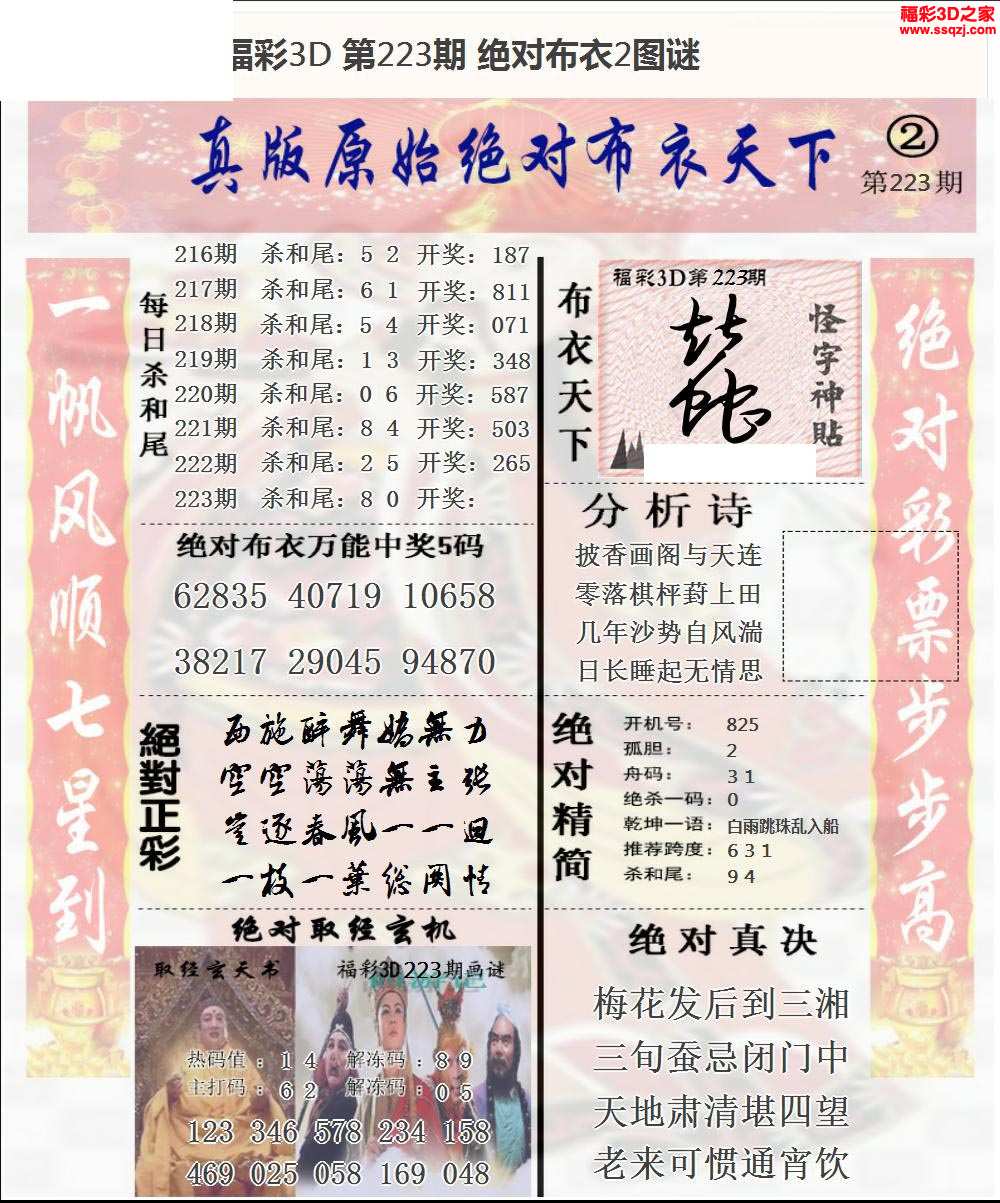 福彩3D之家
www.ssqzj.com
福彩3D 第223期 绝对布衣2图谜
真版原始绝对布衣天下
②
第223期
一帆风顺七星到
每日杀和尾
216期 杀和尾：5 2 开奖：187
217期 杀和尾：6 1 开奖：811
218期 杀和尾：5 4 开奖：071
219期 杀和尾：1 3 开奖：348
220期 杀和尾：0 6 开奖：587
221期 杀和尾：8 4 开奖：503
222期 杀和尾：2 5 开奖：265
223期 杀和尾：8 0 开奖：
绝对布衣万能中奖5码
62835 40719 10658
38217 29045 94870
絕對正彩
西施醉舞嬌無力
空空蕩蕩無主张
岂逐春風一一迴
一枝一葉総関情
绝对取经玄机
取经玄天书
福彩3D223期画谜
热码值：1 4 解冻码：8 9
主打码：6 2 解冻码：0 5
123 346 578 234 158
469 025 058 169 048
布衣天下
福彩3D第223期
怪字神貼
分析诗
披香画阁与天连
零落棋枰葑上田
几年沙势自风湍
日长睡起无情思
绝对精简
开机号： 825
孤胆： 2
舟码： 3 1
绝杀一码：0
乾坤一语：白雨跳珠乱入船
推荐跨度：6 3 1
杀和尾： 9 4
绝对真决
梅花发后到三湘
三旬蚕忌闭门中
天地肃清堪四望
老来可惯通宵饮
绝对彩票步步高